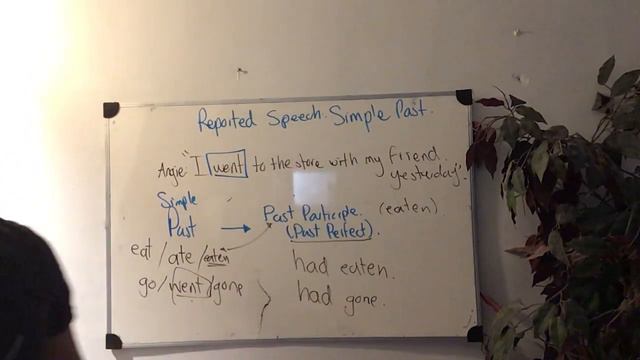 Reported Speech: Simple Past.
Angie: "I went to the store with my friend
yesterday".
Simple
Past → Past Participle. (eaten).
(Past Perfect).
eat / ate / eaten
had eaten.
go / went / gone
had gone.